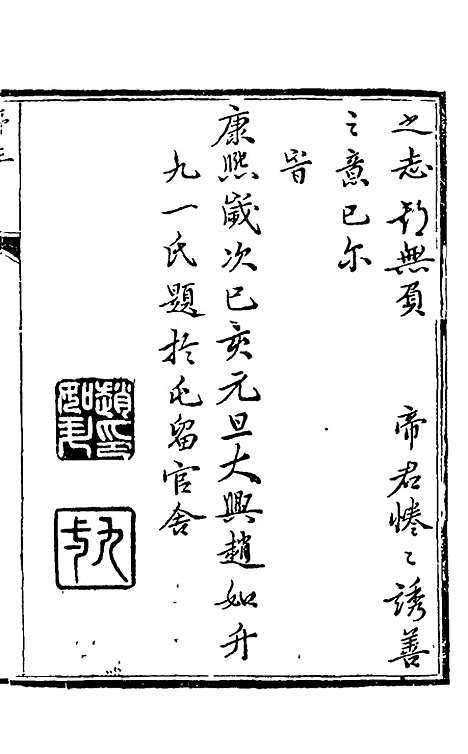 之志郡無負　帝君惓〻誘善
之意已尔
旹
康熙歲次己亥元旦大興趙如升
九一氏題於屯留官舍
趙如升印
九一